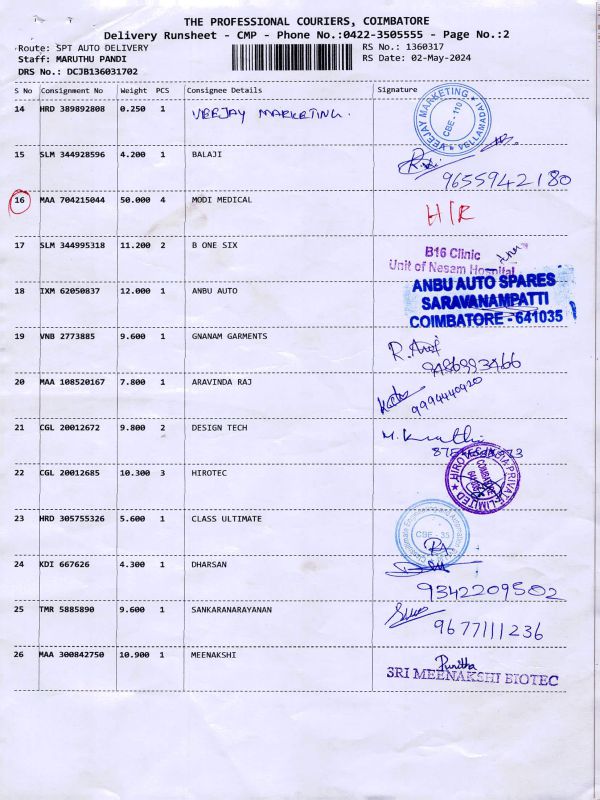 THE PROFESSIONAL COURIERS, COIMBATORE
Delivery Runsheet - CMP - Phone No.:0422-3505555 - Page No.:2
Route: SPT AUTO DELIVERY RS No.: 1360317
Staff: MARUTHU PANDI RS Date: 02-May-2024
DRS No.: DCJB136031702
S No Consignment No Weight PCS Consignee Details Signature
14 HRD 389892808 0.250 1 VEEJAY MARKETING.
VEEJAY MARKETING VELLAMADAI
CBE-110
15 SLM 344928596 4.200 1 BALAJI
9655942180
16 MAA 704215044 50.000 4 MODI MEDICAL H/R
17 SLM 344995318 11.200 2 B ONE SIX
B16 Clinic
Unit of Nesam Hospital
18 IXM 62050837 12.000 1 ANBU AUTO
ANBU AUTO SPARES
SARAVANAMPATTI
COIMBATORE - 641035
19 VNB 2773885 9.600 1 GNANAM GARMENTS
9486993466
20 MAA 108520167 7.800 1 ARAVINDA RAJ
9994440920
21 CGL 20012672 9.800 2 DESIGN TECH
22 CGL 20012685 10.300 3 HIROTEC
COIMBATORE
23 HRD 305755326 5.600 1 CLASS ULTIMATE
CBE - 35
24 KDI 667626 4.300 1 DHARSAN
9342209502
25 TMR 5885890 9.600 1 SANKARANARAYANAN
9677111236
26 MAA 300842750 10.900 1 MEENAKSHI
Punitha
SRI MEENAKSHI BIOTEC